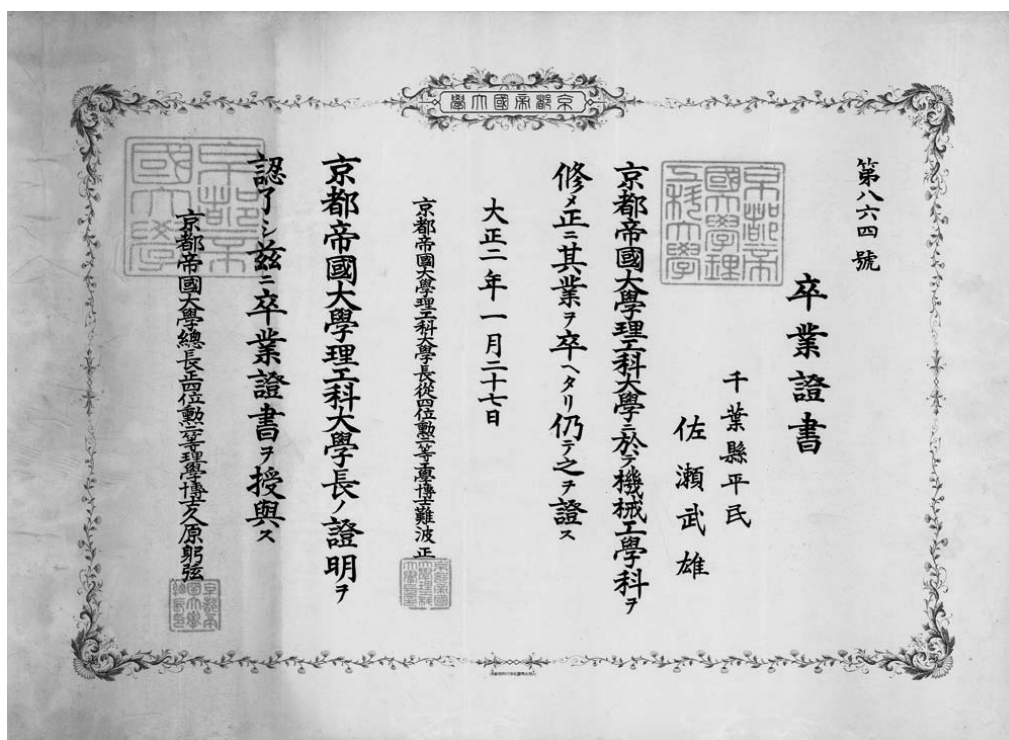 京都帝國大學
第八六四號
卒業證書
千葉縣平民
佐瀬武雄
京都帝國大學理工科大學
京都帝國大學理工科大學ニ於テ機械工學科ヲ
修メ正ニ其業ヲ卒ヘタリ仍テ之ヲ證ス
大正二年一月二十七日
京都帝國大學理工科大學長從四位勲等工學博士難波正
京都帝國大學理工科大學長ノ證明ヲ
認了シ茲ニ卒業證書ヲ授與ス
京都帝國大學
京都帝國大學總長正四位勲等理學博士久原躬弦